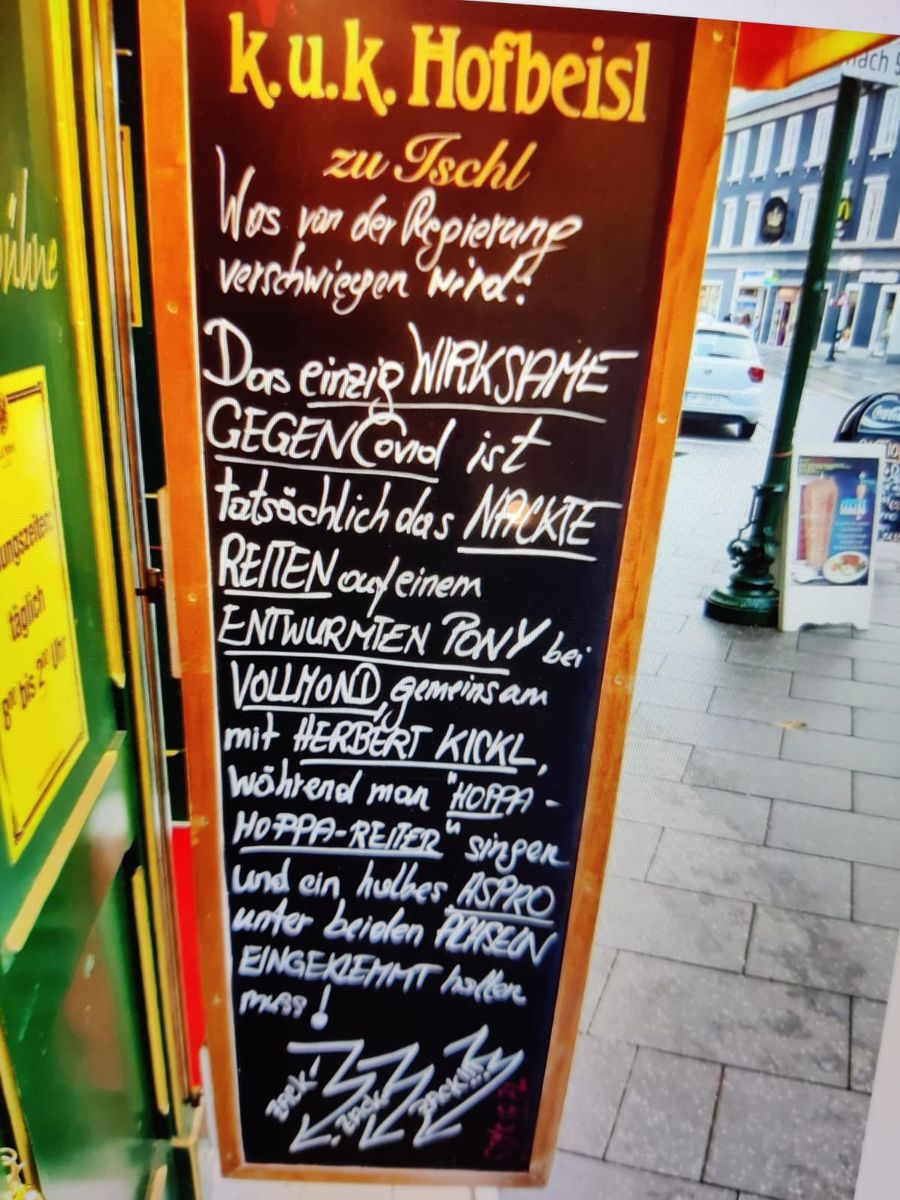 k.u.k. Hofbeisl
zu Ischl
Was von der Regierung
verschwiegen wird:
Das einzig WIRKSAME
GEGEN Covid ist
tatsächlich das NACKTE
REITEN auf einem
ENTWURMTEN PONY bei
VOLLMOND, gemeinsam
mit HERBERT KICKL,
während man "HOPPA-
HOPPA-REITER" singen
und ein halbes ASPRO
unter beiden ACHSELN
EINGEKLEMMT halten
muss!
ZACK!
ZACK
ZACK!!!
ühne
ungszeiten:
täglich
8⁰⁰ bis 2⁰⁰ Uhr
nach 9
Coca-Cola